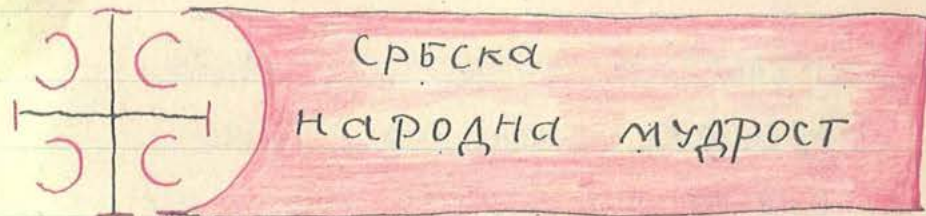 Србска
народна мудрост